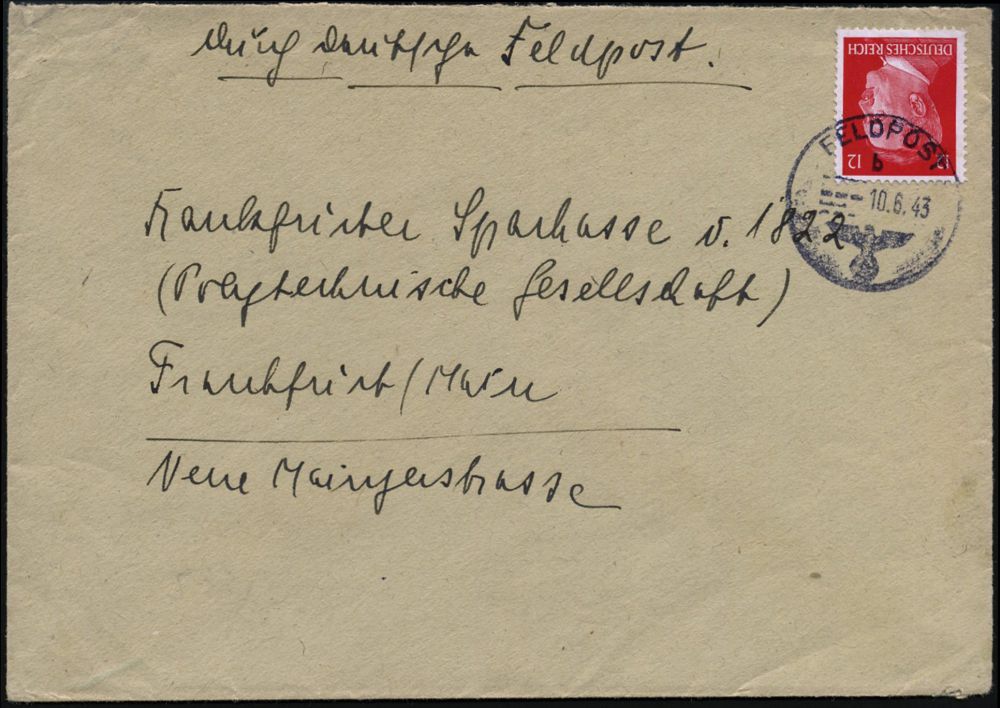 durch deutsche Feldpost.
DEUTSCHES REICH
12 12
FELDPOST
b
10.6.43
Frankfurter Sparkasse v. 1822
(Polytechnische Gesellschaft)
Frankfurt/Main
Neue Mainzerstrasse